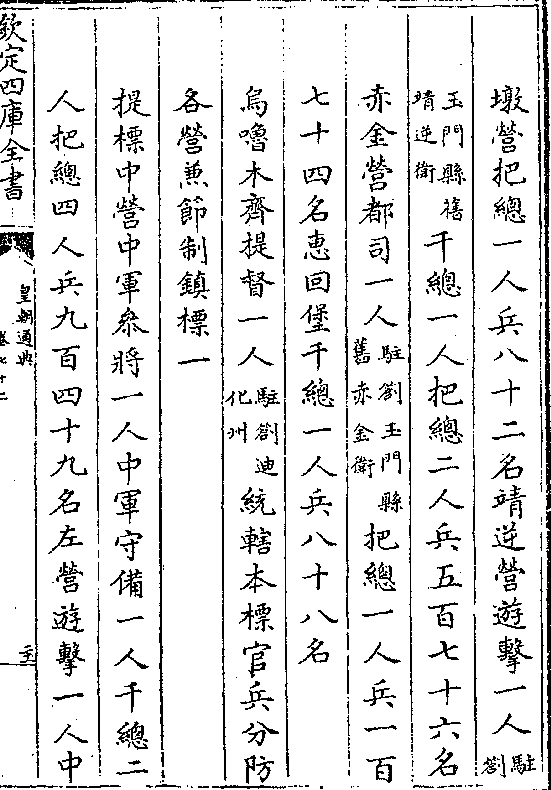 墩營把總一人兵八十二名靖逆營遊擊一人駐劄
玉門縣舊靖逆衛千總一人把總二人兵五百七十六名
赤金營都司一人駐劄玉門縣舊赤金衛把總一人兵一百
七十四名惠回堡千總一人兵八十八名
烏嚕木齊提督一人駐劄迪化州統轄本標官兵分防
各營兼節制鎮標一
提標中營中軍叅將一人中軍守備一人千總二
人把總四人兵九百四十九名左營遊擊一人中
欽定四庫全書
皇朝通典
卷七十二